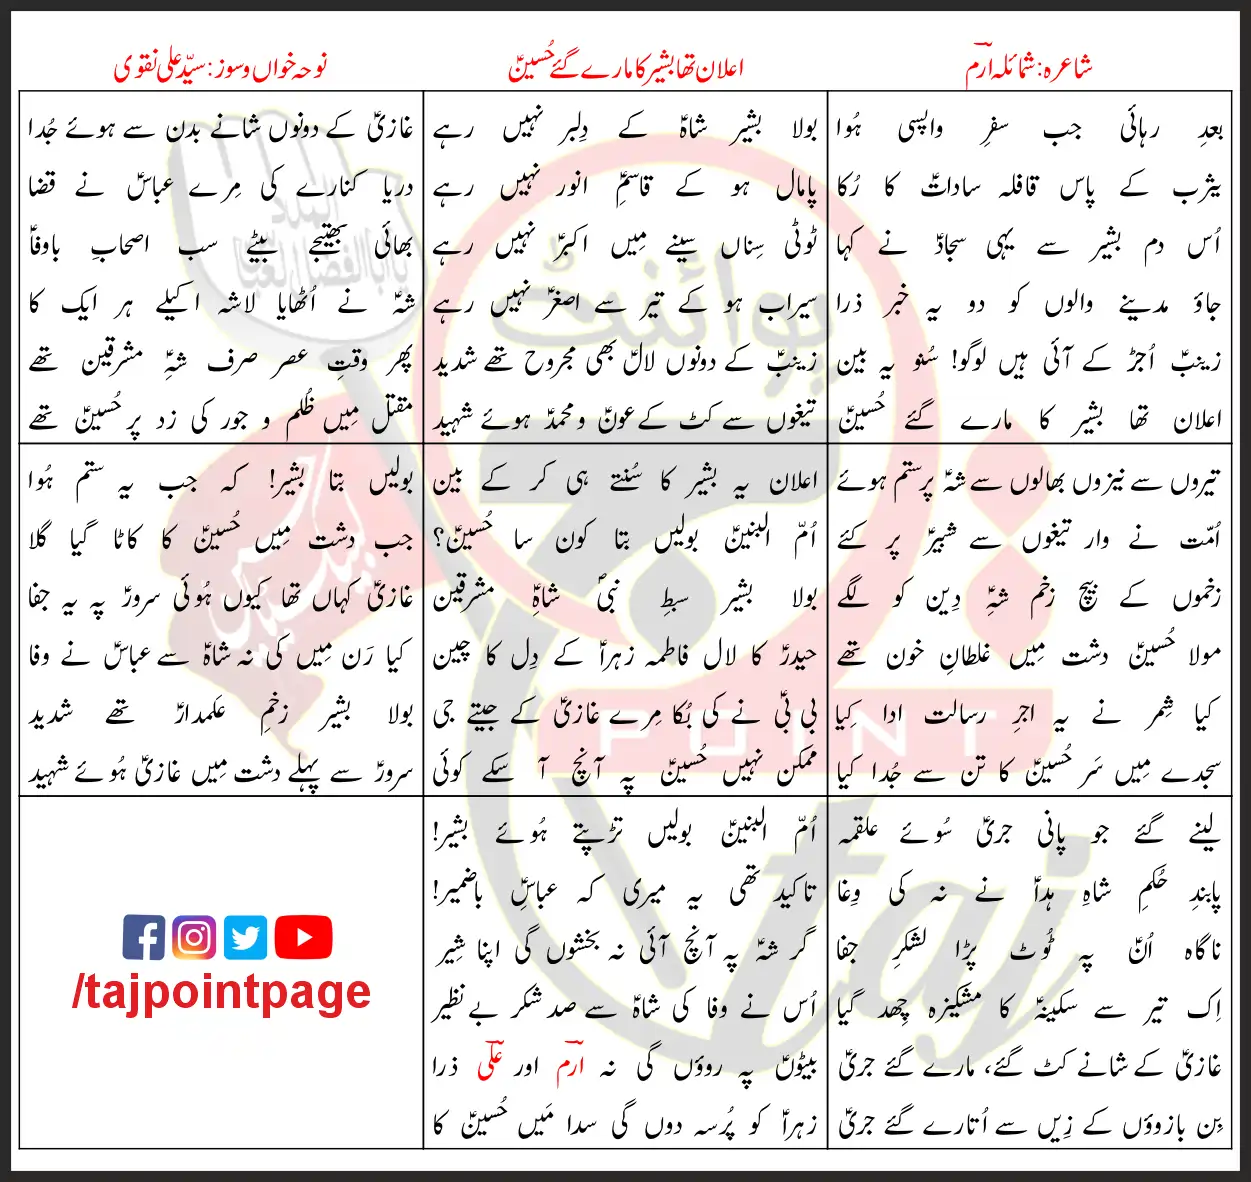 شاعرہ: شمائلہ ارمؔ
اعلان تھا بشیر کا مارے گئے حُسینؑ
نوحہ خواں و سوز: سیّد علی نقوی
بعدِ رہائی جب سفرِ واپسی ہُوا
یثرب کے پاس قافلہ ساداتؑ کا رُکا
اُس دم بشیر سے یہی سجادؑ نے کہا
جاؤ مدینے والوں کو دو یہ خبر ذرا
زینبؑ اُجڑ کے آئی ہیں لوگو! سُنو یہ بین
اعلان تھا بشیر کا مارے گئے حُسینؑ
بولا بشیر شاہؑ کے دِلبر نہیں رہے
پامال ہو کے قاسمِؑ انور نہیں رہے
ٹوٹی سِناں سینے مِیں اکبرؑ نہیں رہے
سیراب ہو کے تیر سے اصغرؑ نہیں رہے
زینبؑ کے دونوں لالؑ بھی مجروح تھے شدید
تیغوں سے کٹ کے عونؑ و محمدؑ ہوئے شہید
غازیؑ کے دونوں شانے بدن سے ہوئے جُدا
دریا کنارے کی مِرے عباسؑ نے قضا
بھائی بھتیجے بیٹے سب اصحابِ باوفاؑ
شہؑ نے اُٹھایا لاشہ اکیلے ہر ایک کا
پھر وقتِ عصر صرف شہِؑ مشرقین تھے
مقتل مِیں ظُلم و جور کی زد پر حُسینؑ تھے
تیروں سے نیزوں بھالوں سے شہؑ پر ستم ہوئے
اُمّت نے وار تیغوں سے شبیرؑ پر کئے
زخموں کے بیچ زخم شہِؑ دِین کو لگے
مولا حُسینؑ دشت مِیں غلطانِ خون تھے
کیا شِمر نے یہ اجرِ رسالت ادا کِیا
سجدے مِیں سَر حُسینؑ کا تن سے جُدا کیا
اعلان یہ بشیر کا سُنتے ہی کر کے بین
اُمّ البنینؑ بولیں بتا کون سا حُسینؑ؟
بولا بشیر سبطِ نبیؐ شاہِؑ مشرقین
حیدرؑ کا لال فاطمہ زہراؑ کے دِل کا چین
بی بیؑ نے کی بُکا مِرے غازیؑ کے جیتے جی
ممکن نہیں حُسینؑ پہ آنچ آ سکے کوئی
بولیں بتا بشیر! کہ جب یہ ستم ہُوا
جب دشت مِیں حُسینؑ کا کاٹا گیا گلا
غازیؑ کہاں تھا کیوں ہُوئی سرورؑ پہ یہ جفا
کیا رَن مِیں کی نہ شاہؑ سے عباسؑ نے وفا
بولا بشیر زخمِ علمدارؑ تھے شدید
سرورؑ سے پہلے دشت مِیں غازیؑ ہُوئے شہید
لینے گئے جو پانی جریؑ سُوئے علقمہ
پابندِ حُکمِ شاہِ ہداؑ نے نہ کی وِغا
ناگاہ اُنؑ پہ ٹُوٹ پڑا لشکرِ جفا
اِک تیر سے سکینہؑ کا مشکیزہ چِھد گیا
غازیؑ کے شانے کٹ گئے، مارے گئے جریؑ
بِن بازوؤں کے زِیں سے اُتارے گئے جریؑ
اُمّ البنینؑ بولیں تڑپتے ہُوئے بشیر!
تاکید تھی یہ میری کہ عباسِؑ باضمیر!
گر شہؑ پہ آنچ آئی نہ بخشوں گی اپنا شِیر
اُس نے وفا کی شاہؑ سے صد شکر بے نظیر
بیٹوںؑ پہ روؤں گی نہ ارمؔ اور علیؔ ذرا
زہراؑ کو پُرسہ دوں گی سدا مَیں حُسینؑ کا
/tajpointpage
یا ابالفضل العباس
پوائنٹ
لبیک یا حسین
POINT
taj